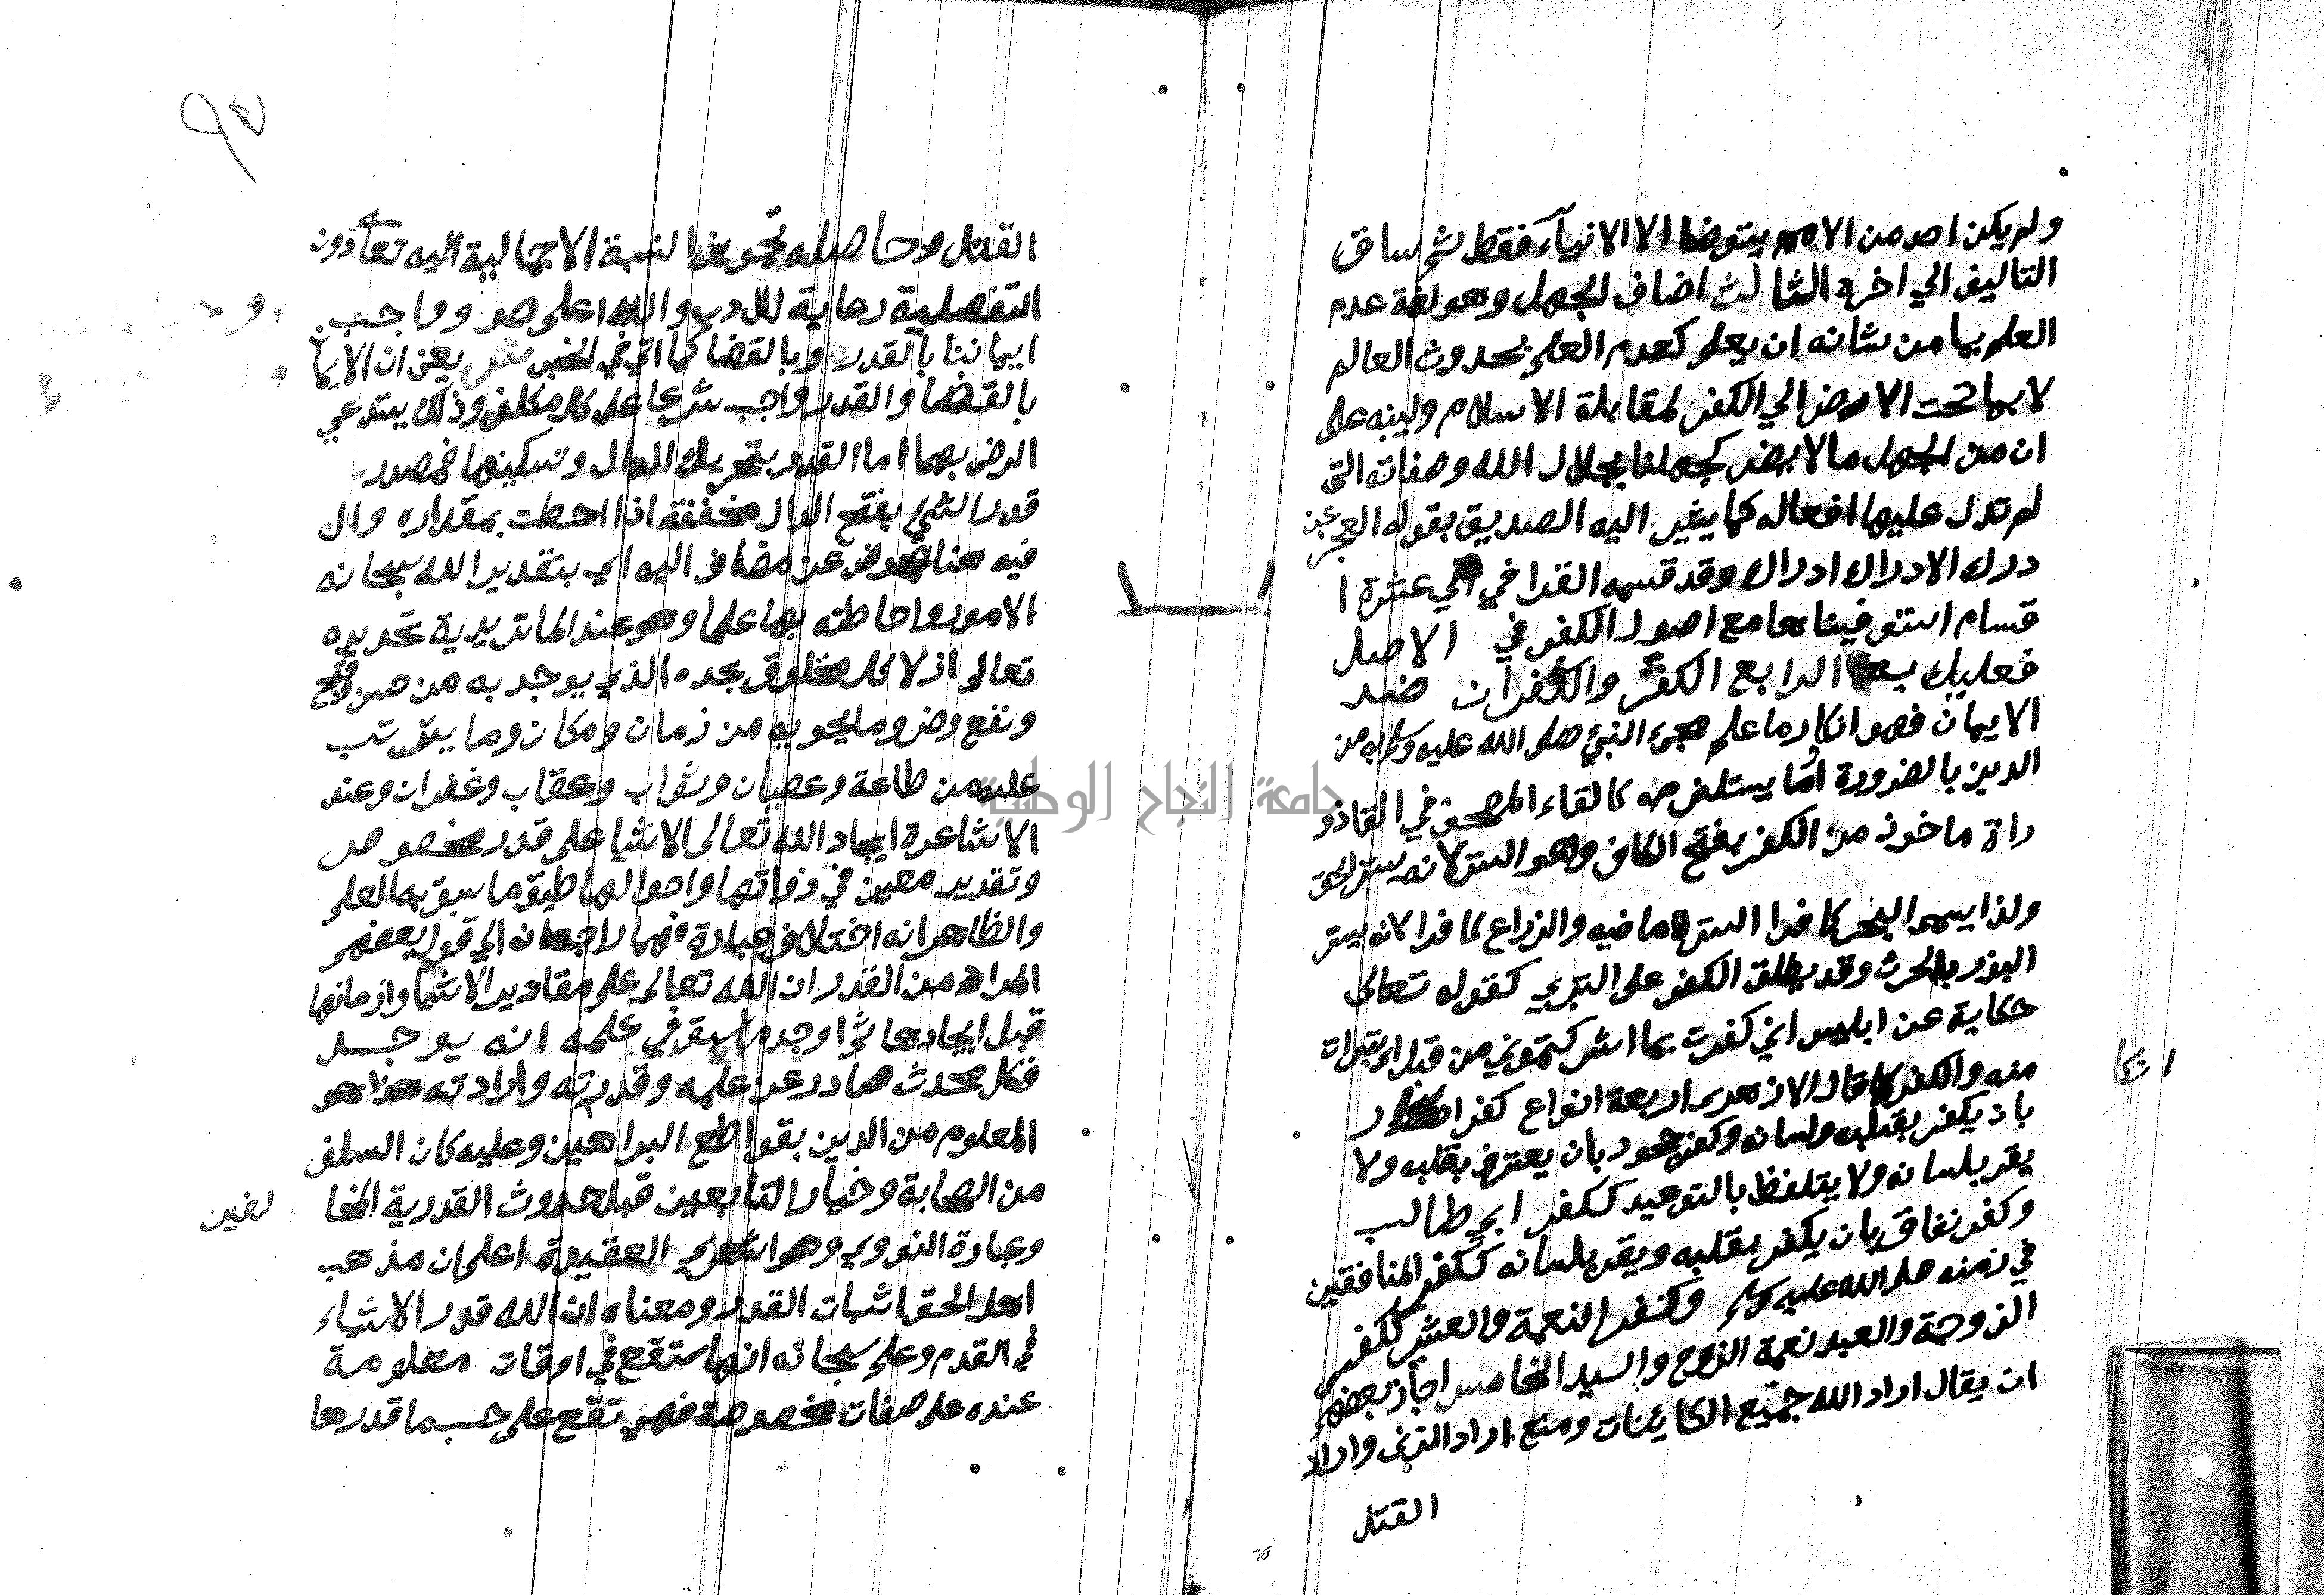 ولم يكن احد من الامم يتوضا الا الانبيآء فقط ثم ساق
التاليف الي اخره الثالث اضاف الجهل وهو لغة عدم
العلم بما من شانه ان يعلم كعدم العلم بحدوث العالم
لا بما تحت الارض الي الكفر لمقابلة الاسلام ولينبه على
ان من الجهل ما لا يضر كجهلنا بجلال الله وصفاته التي
لم تدل عليها افعاله كما يشير اليه الصديق بقوله العجز عن
درك الادراك ادراك وقد قسمه القرافي الي عشرة ا
قسام استوفيناها مع اصول الكفر في الاصل
فعليك به الرابع الكفر والكفران ضد
الايمان فهو انكار ما علم مجيء النبي صلى الله عليه وسلم به من
الدين بالضرورة او ما يستلزمه كالقاء المصحف في القاذو
راة ماخوذ من الكفر بفتح الكاف وهو الستر لانه يستر الحق
ولذا يسمى البحر كافرا لستره ما فيه والزراع كافرا لانه يستر
البذر بالحرث وقد يطلق الكفر على التبري كقوله تعالى
حكاية عن ابليس اني كفرت بما اشركتموني من قبل اي تبرات
منه والكفر كما قال الازهري اربعة انواع كفر انكار
بان يكفر بقلبه ولسانه وكفر جحود بان يعترف بقلبه ولا
يقر بلسانه ولا يتلفظ بالتوحيد ككفر ابي طالب
وكفر نفاق بان يكفر بقلبه ويقر بلسانه ككفر المنافقين
في زمنه صلى الله عليه وسلم وكفر النعمة والعشير ككفر
الزوجة والعبد نعمة الزوج والسيد الخامس اجاز بعضهم
ان يقال اراد الله جميع الكاينات ومنع اراد الزنى واراد
القتل
انكا
القتل وحاصله تجويز النسبة الاجمالية اليه تعالى دون
التفصلية رعاية للادب والله اعلم ص وواجب
ايماننا بالقدر وبالقضا كما اتى في الخبر ش يعني ان الايما
بالقضا والقدر واجب شرعا على كل مكلف وذلك يستدعي
الرضى بهما اما القدر بتحريك الدال وتسكينها فمصدر
قدر الشي بفتح الدال مخففة اذا احطت بمقداره وال
فيه هنا عوض عن مضاف اليه اي بتقدير الله سبحانه
الامور واحاطته بها علما وهو عند الماتريدية تحديده
تعالى ازلا كل مخلوق بحده الذي يوجد به من حسن وقبح
ونفع وضر وما يحويه من زمان ومكان وما يترتب
عليه من طاعة وعصيان وثواب وعقاب وغفران وعند
الاشاعرة ايجاد الله تعالى الاشيا على قدر مخصوص
وتقدير معين في ذواتها واحوالها طبق ما سبق به العلم
والظاهر انه اختلاف عبارة فهما راجعان الي قول بعضهم
المراد من القدر ان الله تعالى علم مقادير الاشيا وازمانها
قبل ايجادها ثم اوجد ما سبق في علمه انه يوجد
فكل محدث صادر عن علمه وقدرته وارادته هذا هو
المعلوم من الدين بقواطع البراهين وعليه كان السلف
من الصحابة وخيار التابعين قبل حدوث القدرية المخا لفين
وعبارة النووي وهو اشعري العقيدة اعلم ان مذهب
اهل الحق اثبات القدر ومعناه ان الله قدر الاشياء
في القدم وعلم سبحانه انها ستقع في اوقات معلومة
عنده على صفات مخصوصة فهي تقع على حسب ما قدرها
جامعة النجاح الوطنية